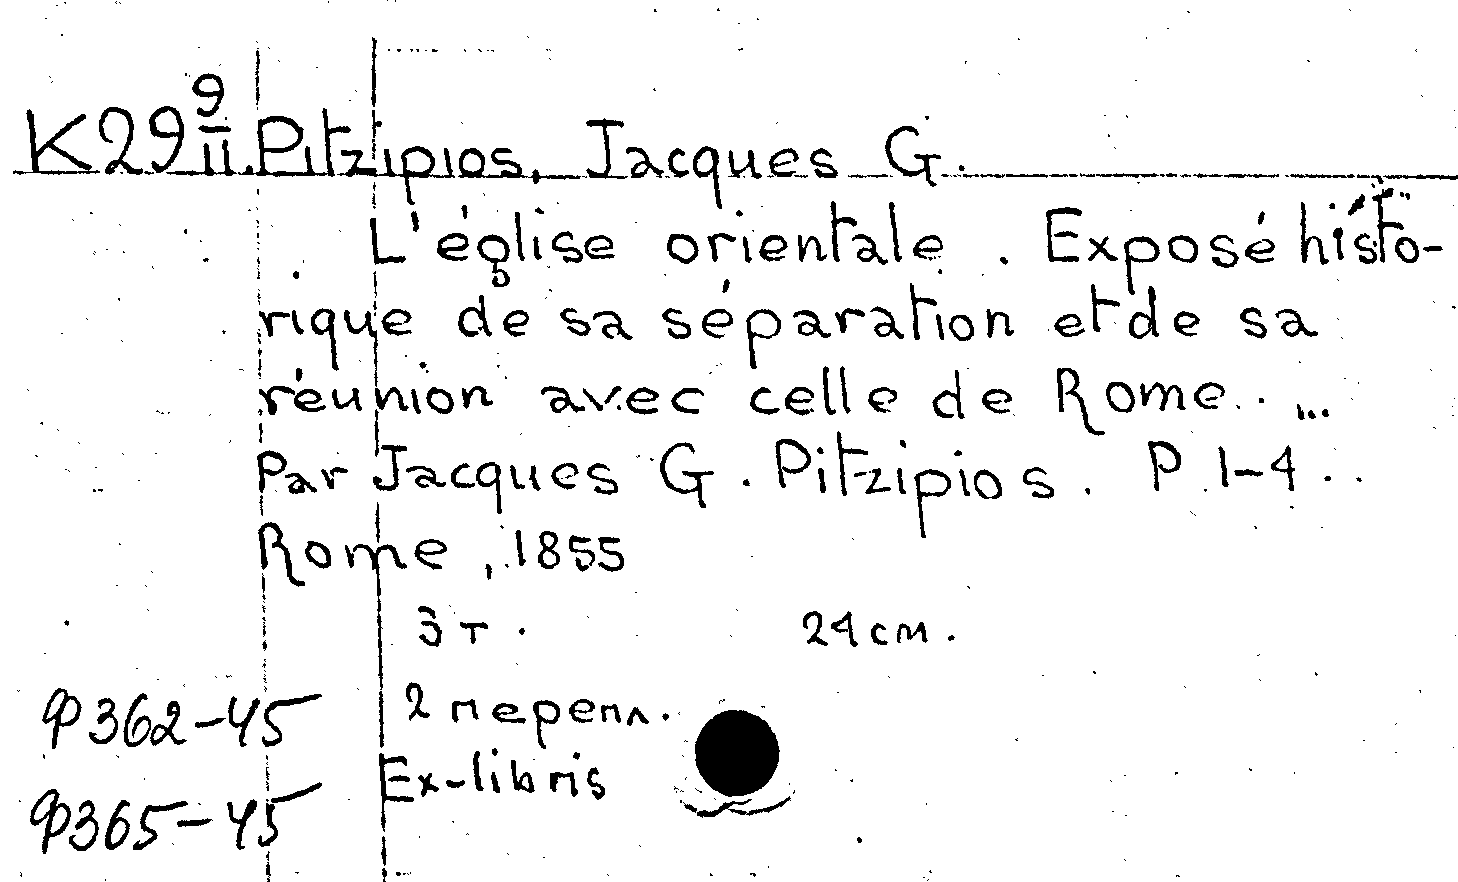 K29 9/II. Pitzipios, Jacques G.
L'église orientale. Exposé histo-
rique de sa séparation et de sa
réunion avec celle de Rome. . ...
Par Jacques G. Pitzipios. P. 1-4. .
Rome, 1855
3 т. 24 см.
Ф362-45 2 перепл.
Ex-libris
Ф365-45